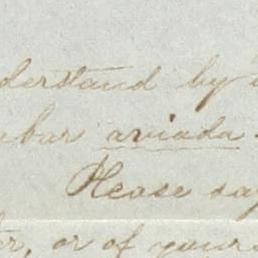 derstand by
abar aviada
Please say
ter, or of yours